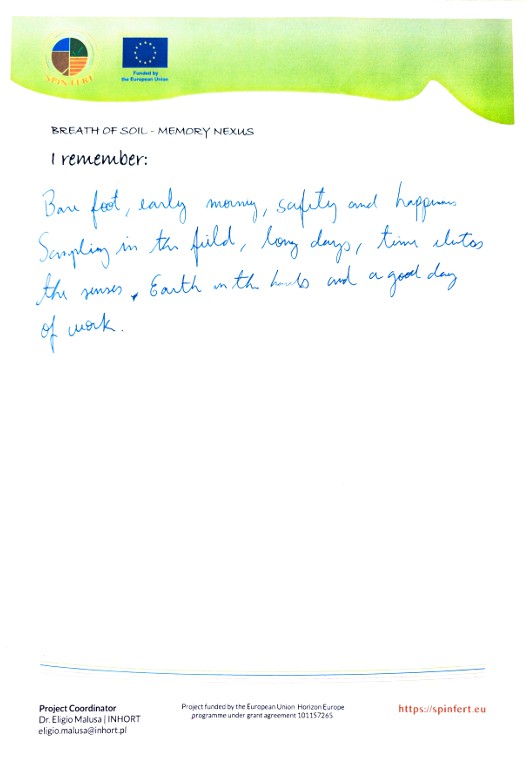 SPINFERT
Funded by
the European Union
BREATH OF SOIL - MEMORY NEXUS
I remember:
Bare foot, early morning, safety and happiness
Sampling in the field, long days, time
the senses, Earth in the hands and a good day
of work.
Project Coordinator
Dr. Eligio Malusa | INHORT
eligio.malusa@inhort.pl
Project funded by the European Union Horizon Europe
programme under grant agreement 101157265
https://spinfert.eu